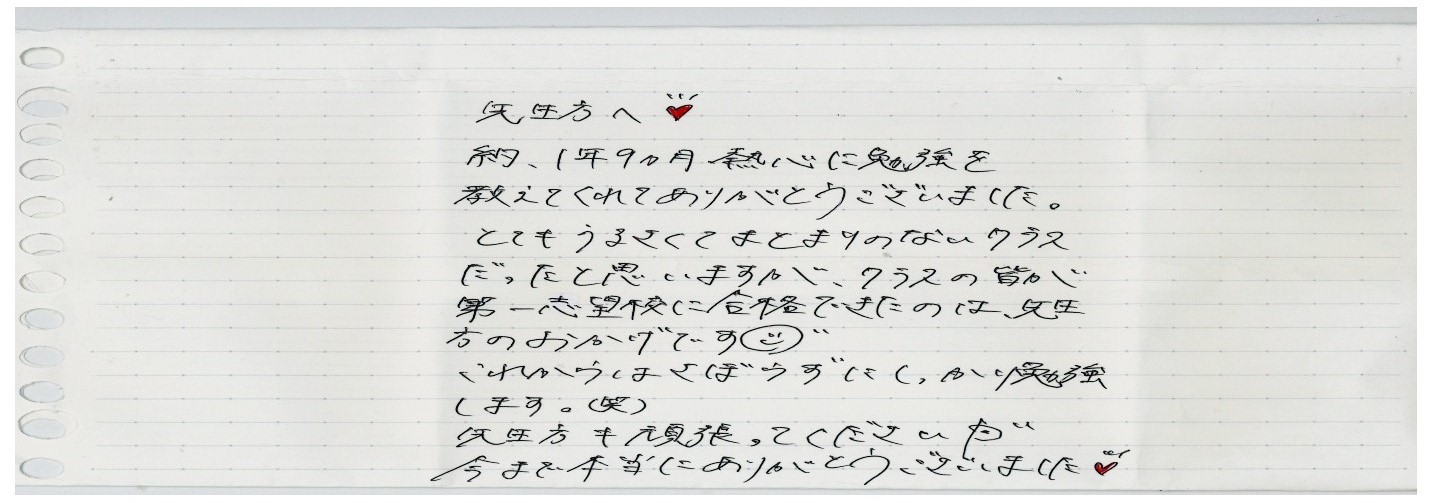 先生方へ
約、1年9ヵ月 熱心に勉強を
教えてくれてありがとうございました。
とてもうるさくてまとまりのないクラス
だったと思いますが、クラスの皆が
第一志望校に合格できたのは、先生
方のおかげです
これからはさぼらずにしっかり勉強
します。(笑)
先生方も頑張ってください
今まで本当にありがとうございました